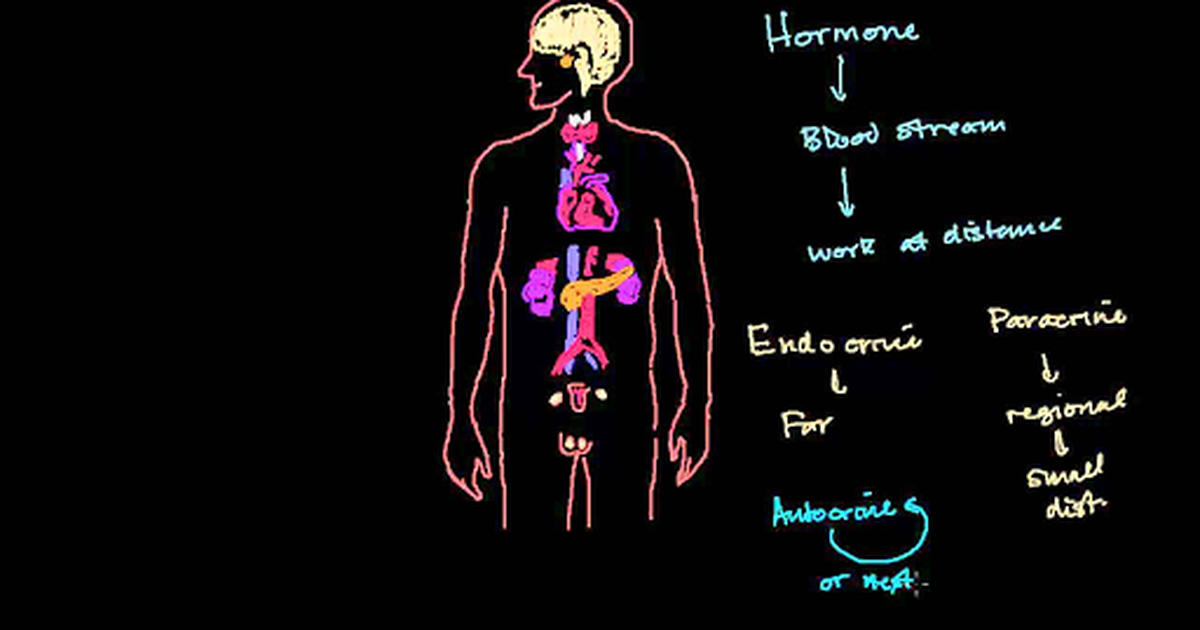 Hormone
Blood stream
work at distance
Endocrine
Far
Paracrine
regional
small
dist.
Autocrine
or next